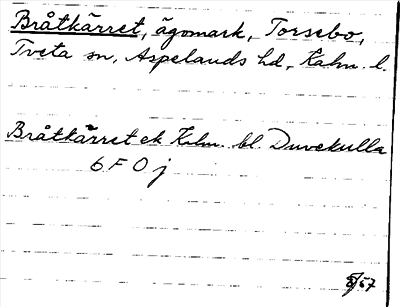 Bråtkärret, ägomark, Torsebo,
Tveta sn, Aspelands hd, Kalm. l.
Bråtkärret ek Kalm. bl. Duvekulla
6 F 0 j
57